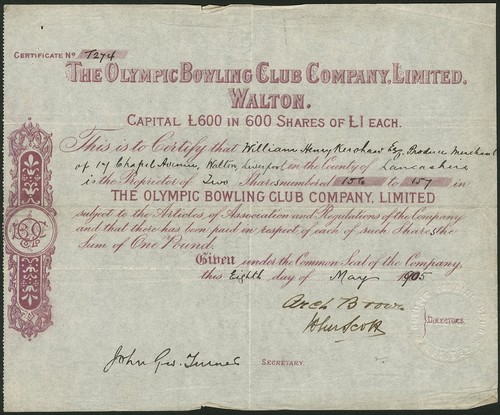 CERTIFICATE No T274
THE OLYMPIC BOWLING CLUB COMPANY, LIMITED.
WALTON.
CAPITAL £600 IN 600 SHARES OF £1 EACH.
This is to Certify that William Henry Kershaw Esq. Produce Merchant
of 17 Chapel Avenue, Walton, Liverpool in the County of Lancashire
is the Proprietor of Two Shares numbered 156 to 157 in
THE OLYMPIC BOWLING CLUB COMPANY, LIMITED
subject to the Articles of Association and Regulations of the Company
and that there has been paid in respect of each of such Shares the
Sum of One Pound.
Given under the Common Seal of the Company.
this Eighth day of May 1905
Arch Brown
John Scott
DIRECTORS.
John Geo. Turner SECRETARY.